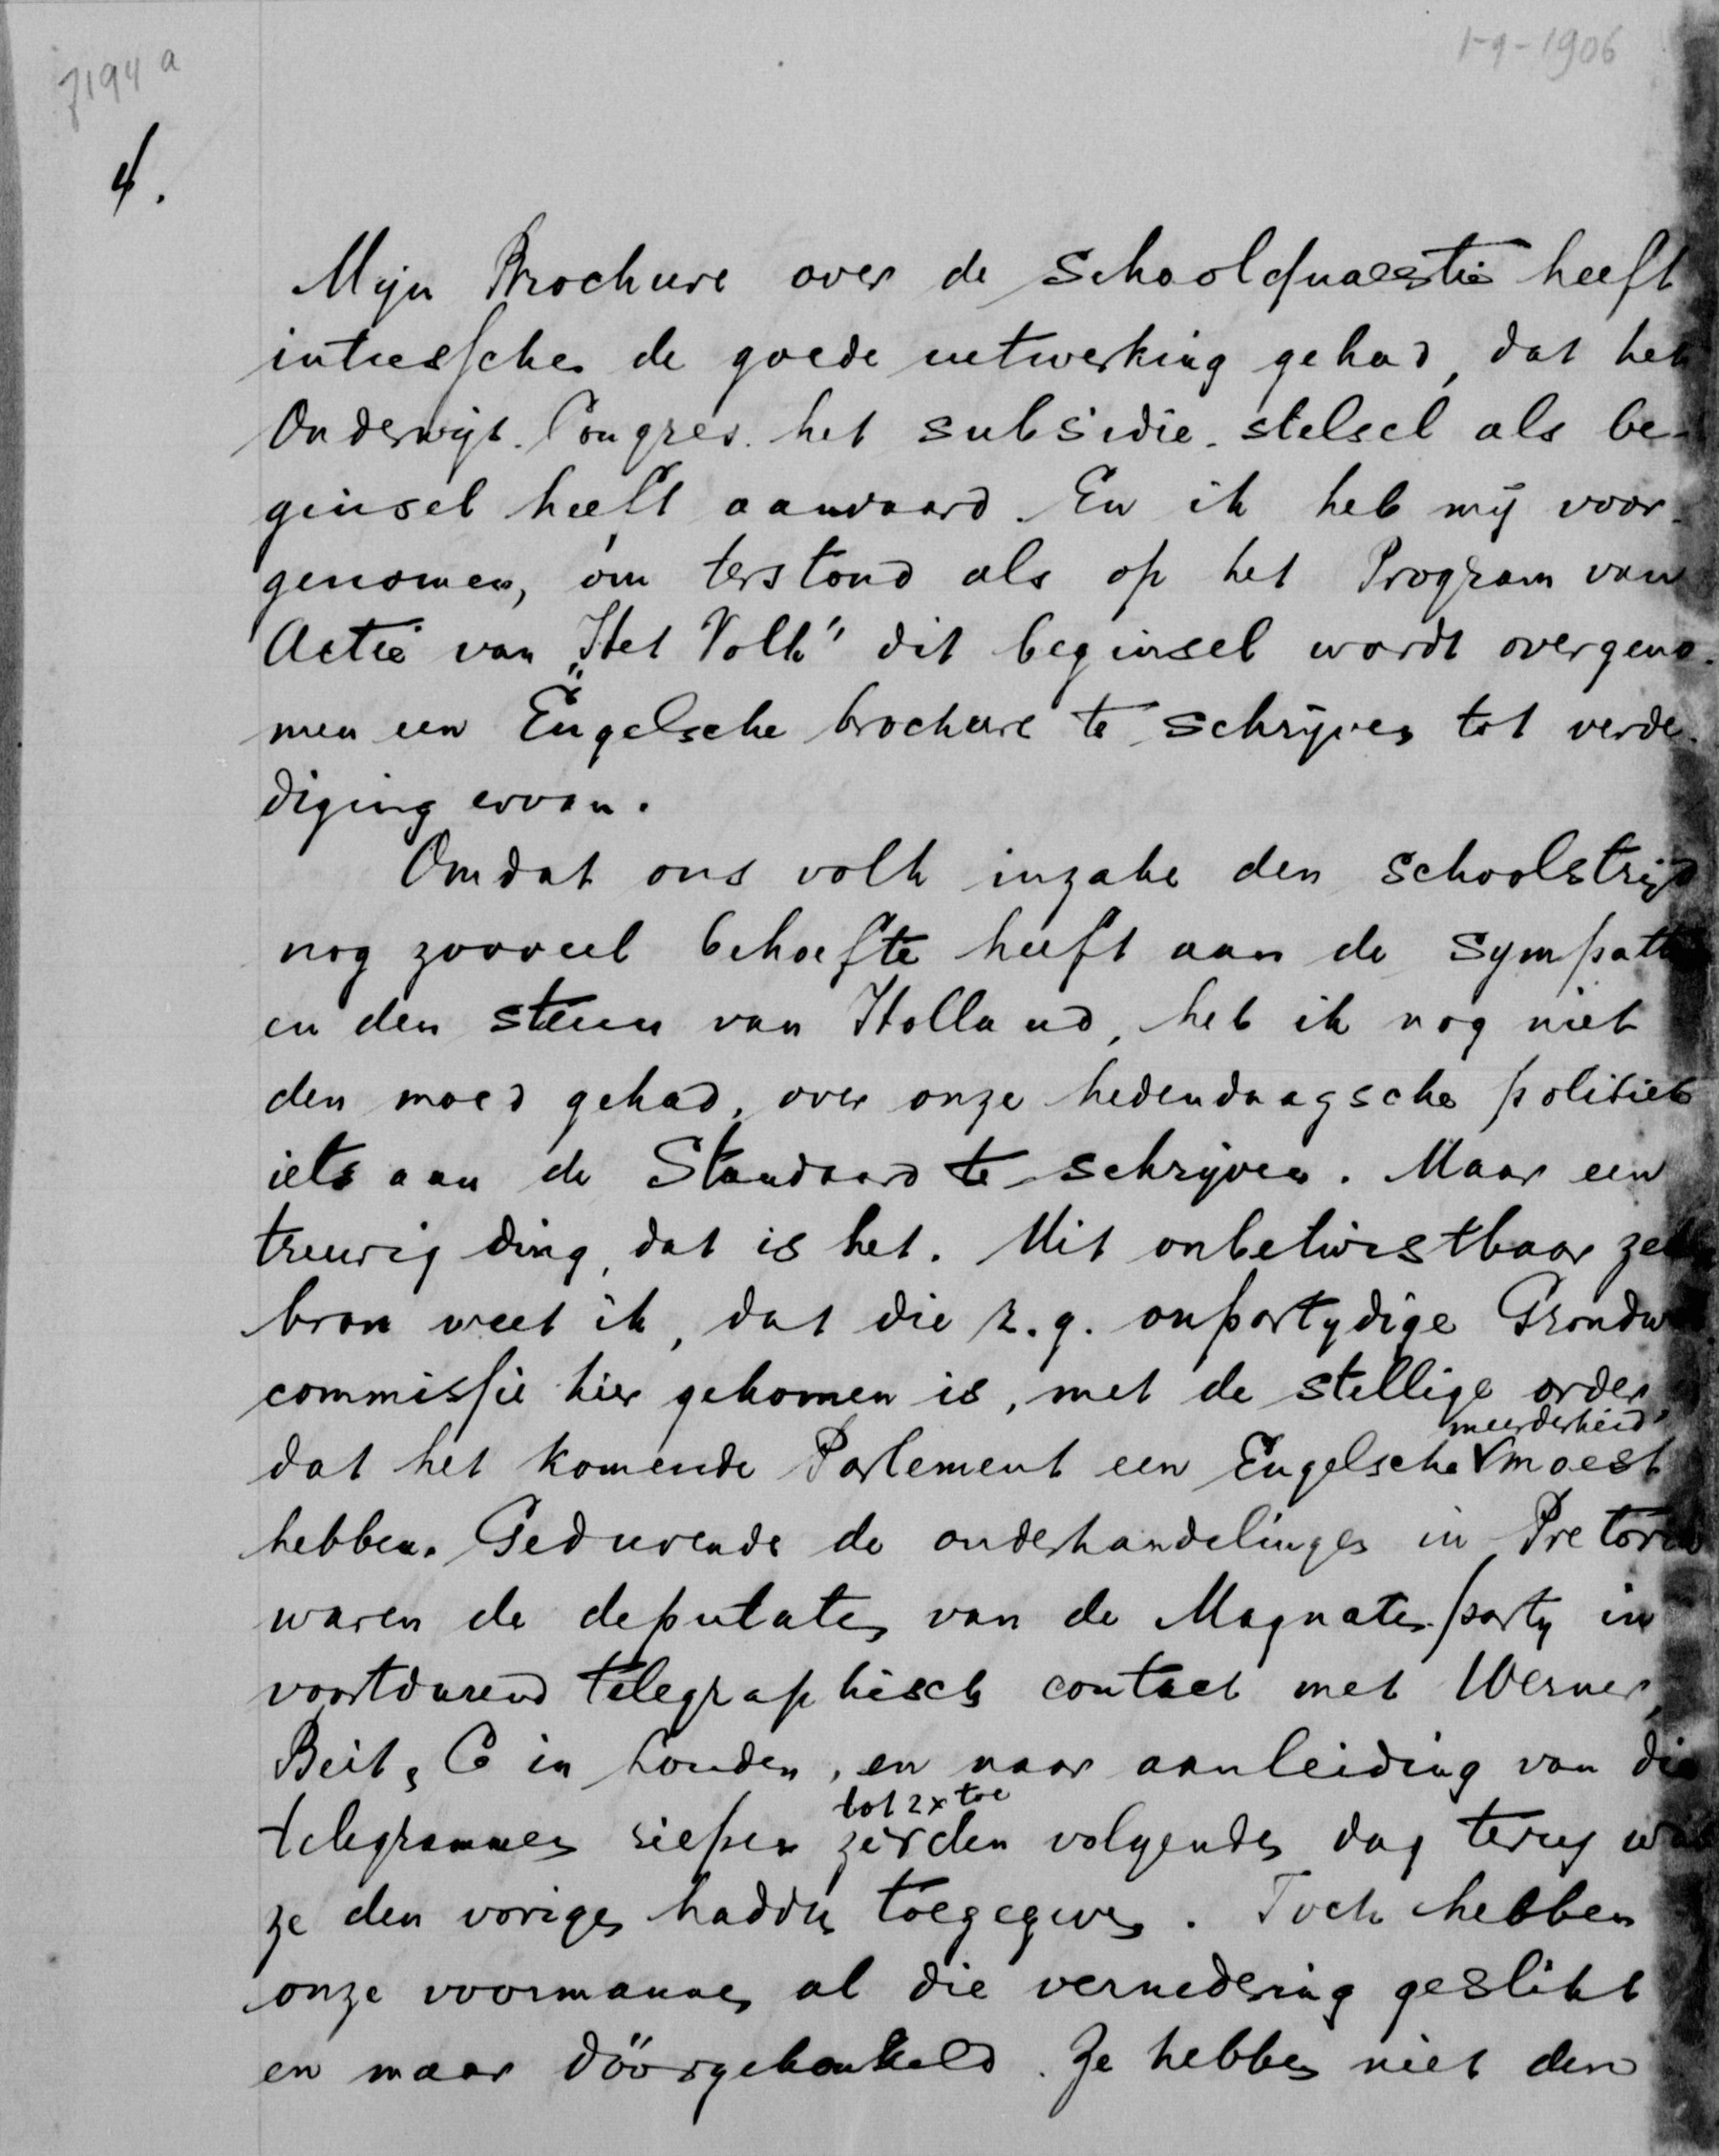 7194 a
1-9-1906
4.
Mijn Brochure over de schoolquaestie heeft
intusschen de goede uitwerking gehad, dat het
Onderwijs-Congres het subsidie-stelsel als be-
ginsel heeft aanvaard. En ik heb mij voor-
genomen, om terstond als op het Program van
Actie van „Het Volk" dit beginsel wordt overgeno-
men een Engelsche brochure te schrijven tot verde-
diging ervan.
Omdat ons volk inzake den schoolstrijd
nog zooveel behoefte heeft aan de sympathie
en den steun van Holland, heb ik nog niet
den moed gehad, over onze hedendaagsche politiek
iets aan de Standaard te schrijven. Maar een
treurig ding, dat is het. Uit onbetwistbaar
bron weet ik, dat die z.g. onpartydige Grondw
commissie hier gekomen is, met de stellige order
dat het komende Parlement een Engelsche meerderheid moest
hebben. Gedurende de onderhandelingen in Pretoria
waren de deputaten van de Magnaten-party in
voortdurend telegraphisch contact met Werner,
Beit & Co in Londen, en naar aanleiding van die
telegrammen riepen ze tot 2x toe den volgenden dag terug wat
ze den vorigen hadden toegegeven. Toch hebben
onze voormannen al die vernedering geslikt
en maar dóórgekonkeld. Ze hebben niet den